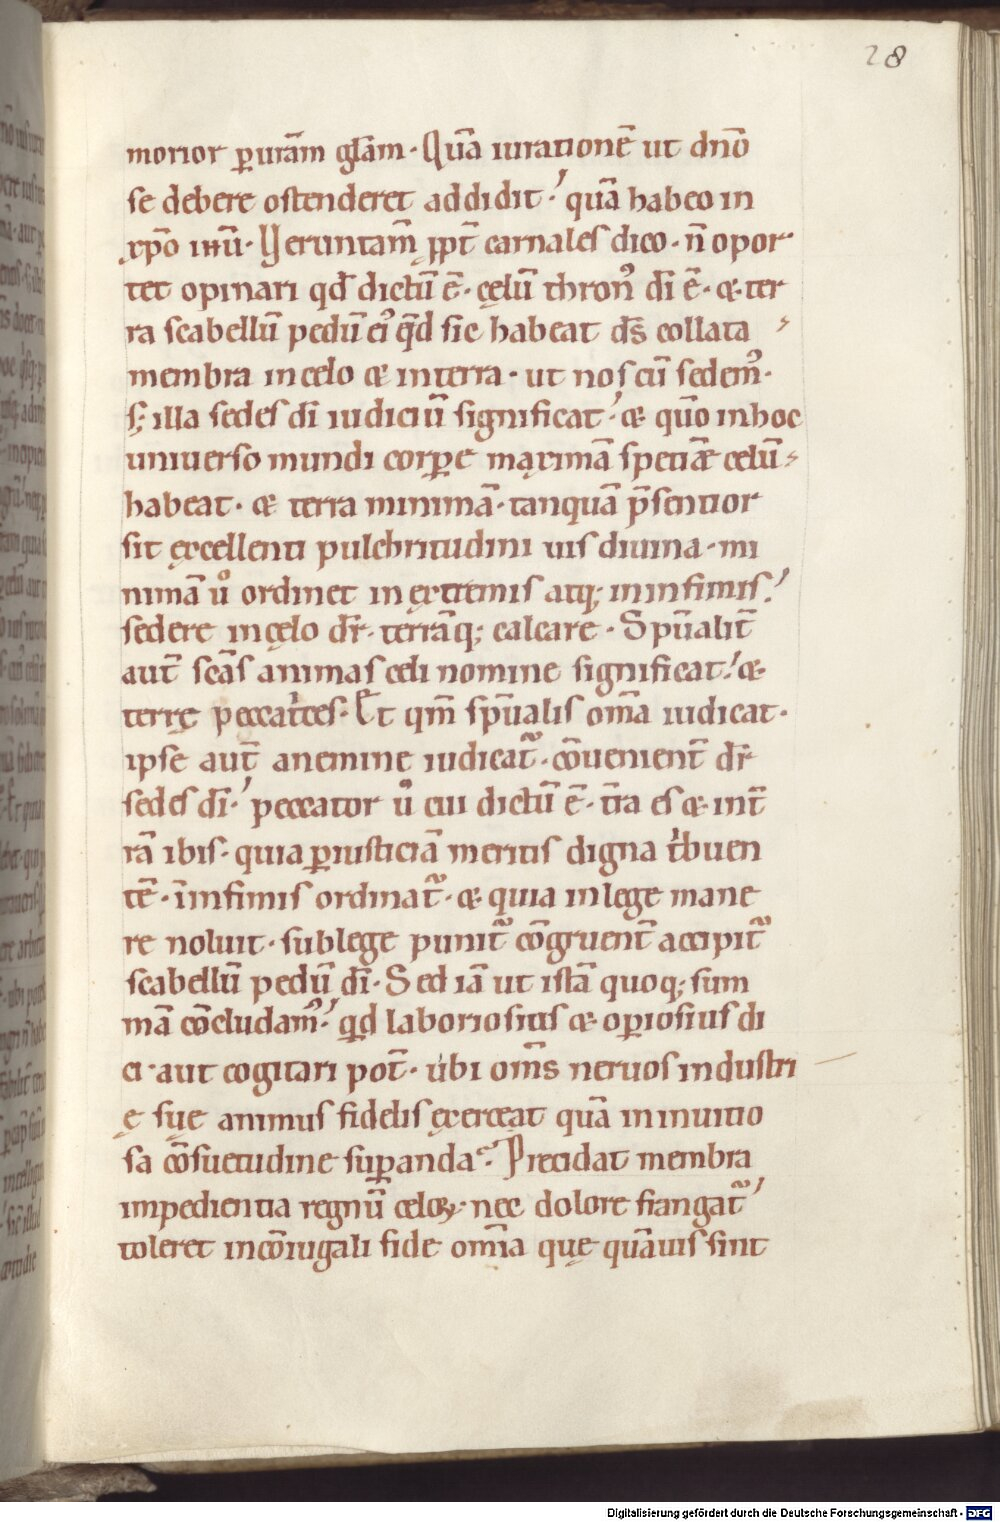 28
morior ꝑ ur̄am gl̄am · Quā iurationē ut dn̄o
se debere ostenderet addidit · quā habeo in
xp̄o ihū · Veruntam̄ ꝓpt̄ carnales dico · n̄ opor
tet opinari qd̄ dictū ē · cęlū thronꝰ dī ē · & ter
ra scabellū pedū eiꝰ qd̄ sic habeat ds̄ collata
membra in celo & in terra · ut nos cū sedemꝰ ·
s; illa sedes dī iudiciū significat · & qm̄o in hoc
uniuerso mundi corꝑe maximā spetiāe celū
habeat · & terra minimā · tanquā p̄sentior
sit excellenti pulchritudini uis diuina · mi
nimā u̓o ordinet in extremis atq; in infimis ·
sedere in cęlo dr̄ · terrāq; calcare · Spūalit̄
aut̄ scās animas celi nomine significat · &
terrę peccatͥces · Et qm̄ spūalis om̄a iudicat ·
ipse aut̄ a nemine iudicat᷑ · cōuenient̄ dr̄
sedes dī · peccator u̓o cui dictū ē · t̄ra es & in t̄
rā ibis · quia ꝑ iusticiā meritis digna tͥbuen
tē · in infimis ordinat᷑ · & quia in lege mane
re noluit · sub lege punit᷑ cōgruent̄ accipit᷑
scabellū pedū dī · Sed iā ut istā quoq; sum
mā cōcludamꝰ · qd̄ laboriosius & oꝑiosius di
ci · aut cogitari pot̄ · ubi om̄s neruos industri
ę suę animus fidelis exerceat quā in uitio
sa cōsuetudine suꝑanda · Precidat membra
impedientia regnū celoꝝ · nec dolore frangat᷑
toleret in cōiugali fide om̄ia quę quāuis sint
Digitalisierung gefördert durch die Deutsche Forschungsgemeinschaft - DFG